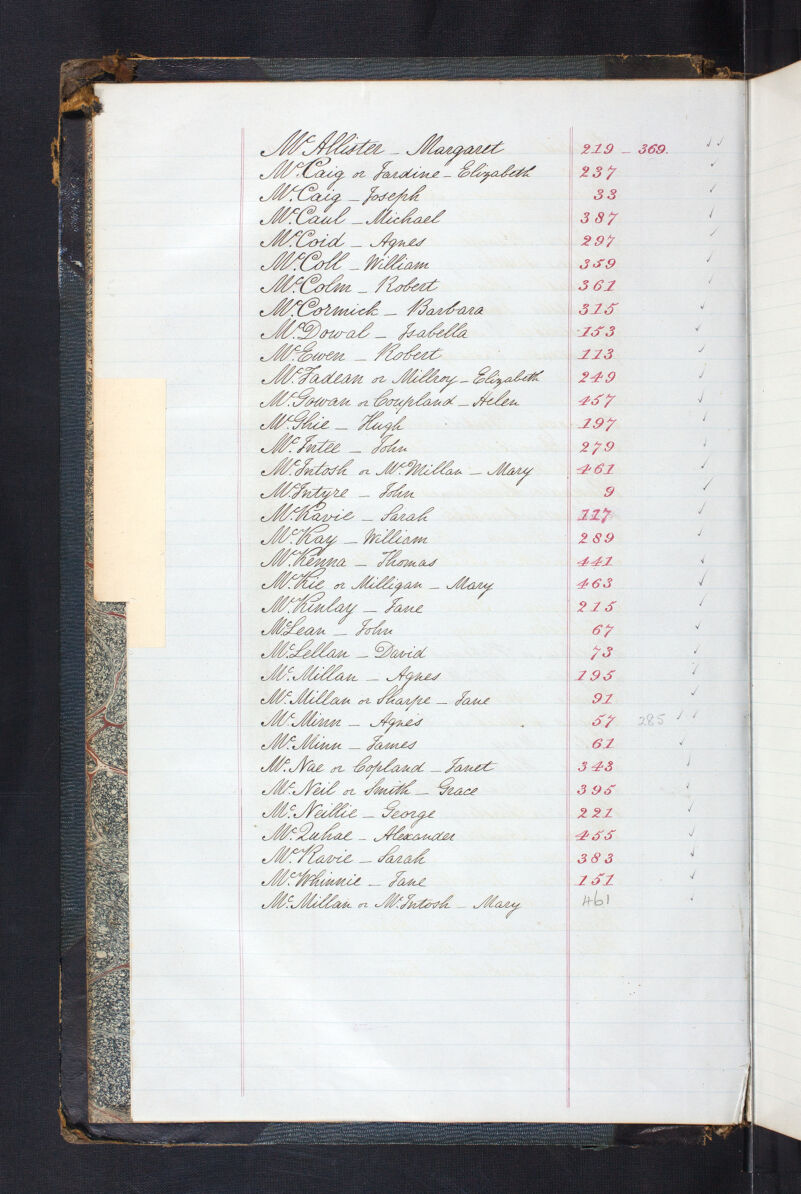 McAllister – Margaret 219 – 369.
Mc.Caig or Jardine – Elizabeth 237
Mc.Caig – Joseph 33
Mc.Caul – Michael 387
Mc.Coid – Agnes 297
Mc.Coll – William 359
Mc.Colm – Robert 361
Mc.Cormick – Barbara 315
Mc.Dowal – Isabella 153
Mc.Ewen – Robert 113
Mc.Fadean or Millroy – Elizabeth 249
Mc.Gowan or Coupland – Helen 457
Mc.Ghie – Hugh 197
Mc.Intee – John 279
Mc.Intosh or Mc.Millan – Mary 461
Mc.Intyre – John 9
Mc.Kavie – Sarah 117
Mc.Kay – William 289
Mc.Kenna – Thomas 441
Mc.Kie or Milligan – Mary 463
Mc.Kinlay – Jane 215
McLean – John 67
Mc.Lellan – David 73
Mc.Millan – Agnes 195
Mc.Millan or Sharpe – Jane 91
Mc.Minn – Agnes 57 285
Mc.Minn – James 61
Mc.Nae or Copland – Janet 343
Mc.Neil or Smith – Grace 395
Mc.Neillie – George 221
Mc.Quhae – Alexander 455
Mc.Kavie – Sarah 383
Mc.Whinnie – Jane 151
Mc.Millan or Mc.Intosh – Mary 461